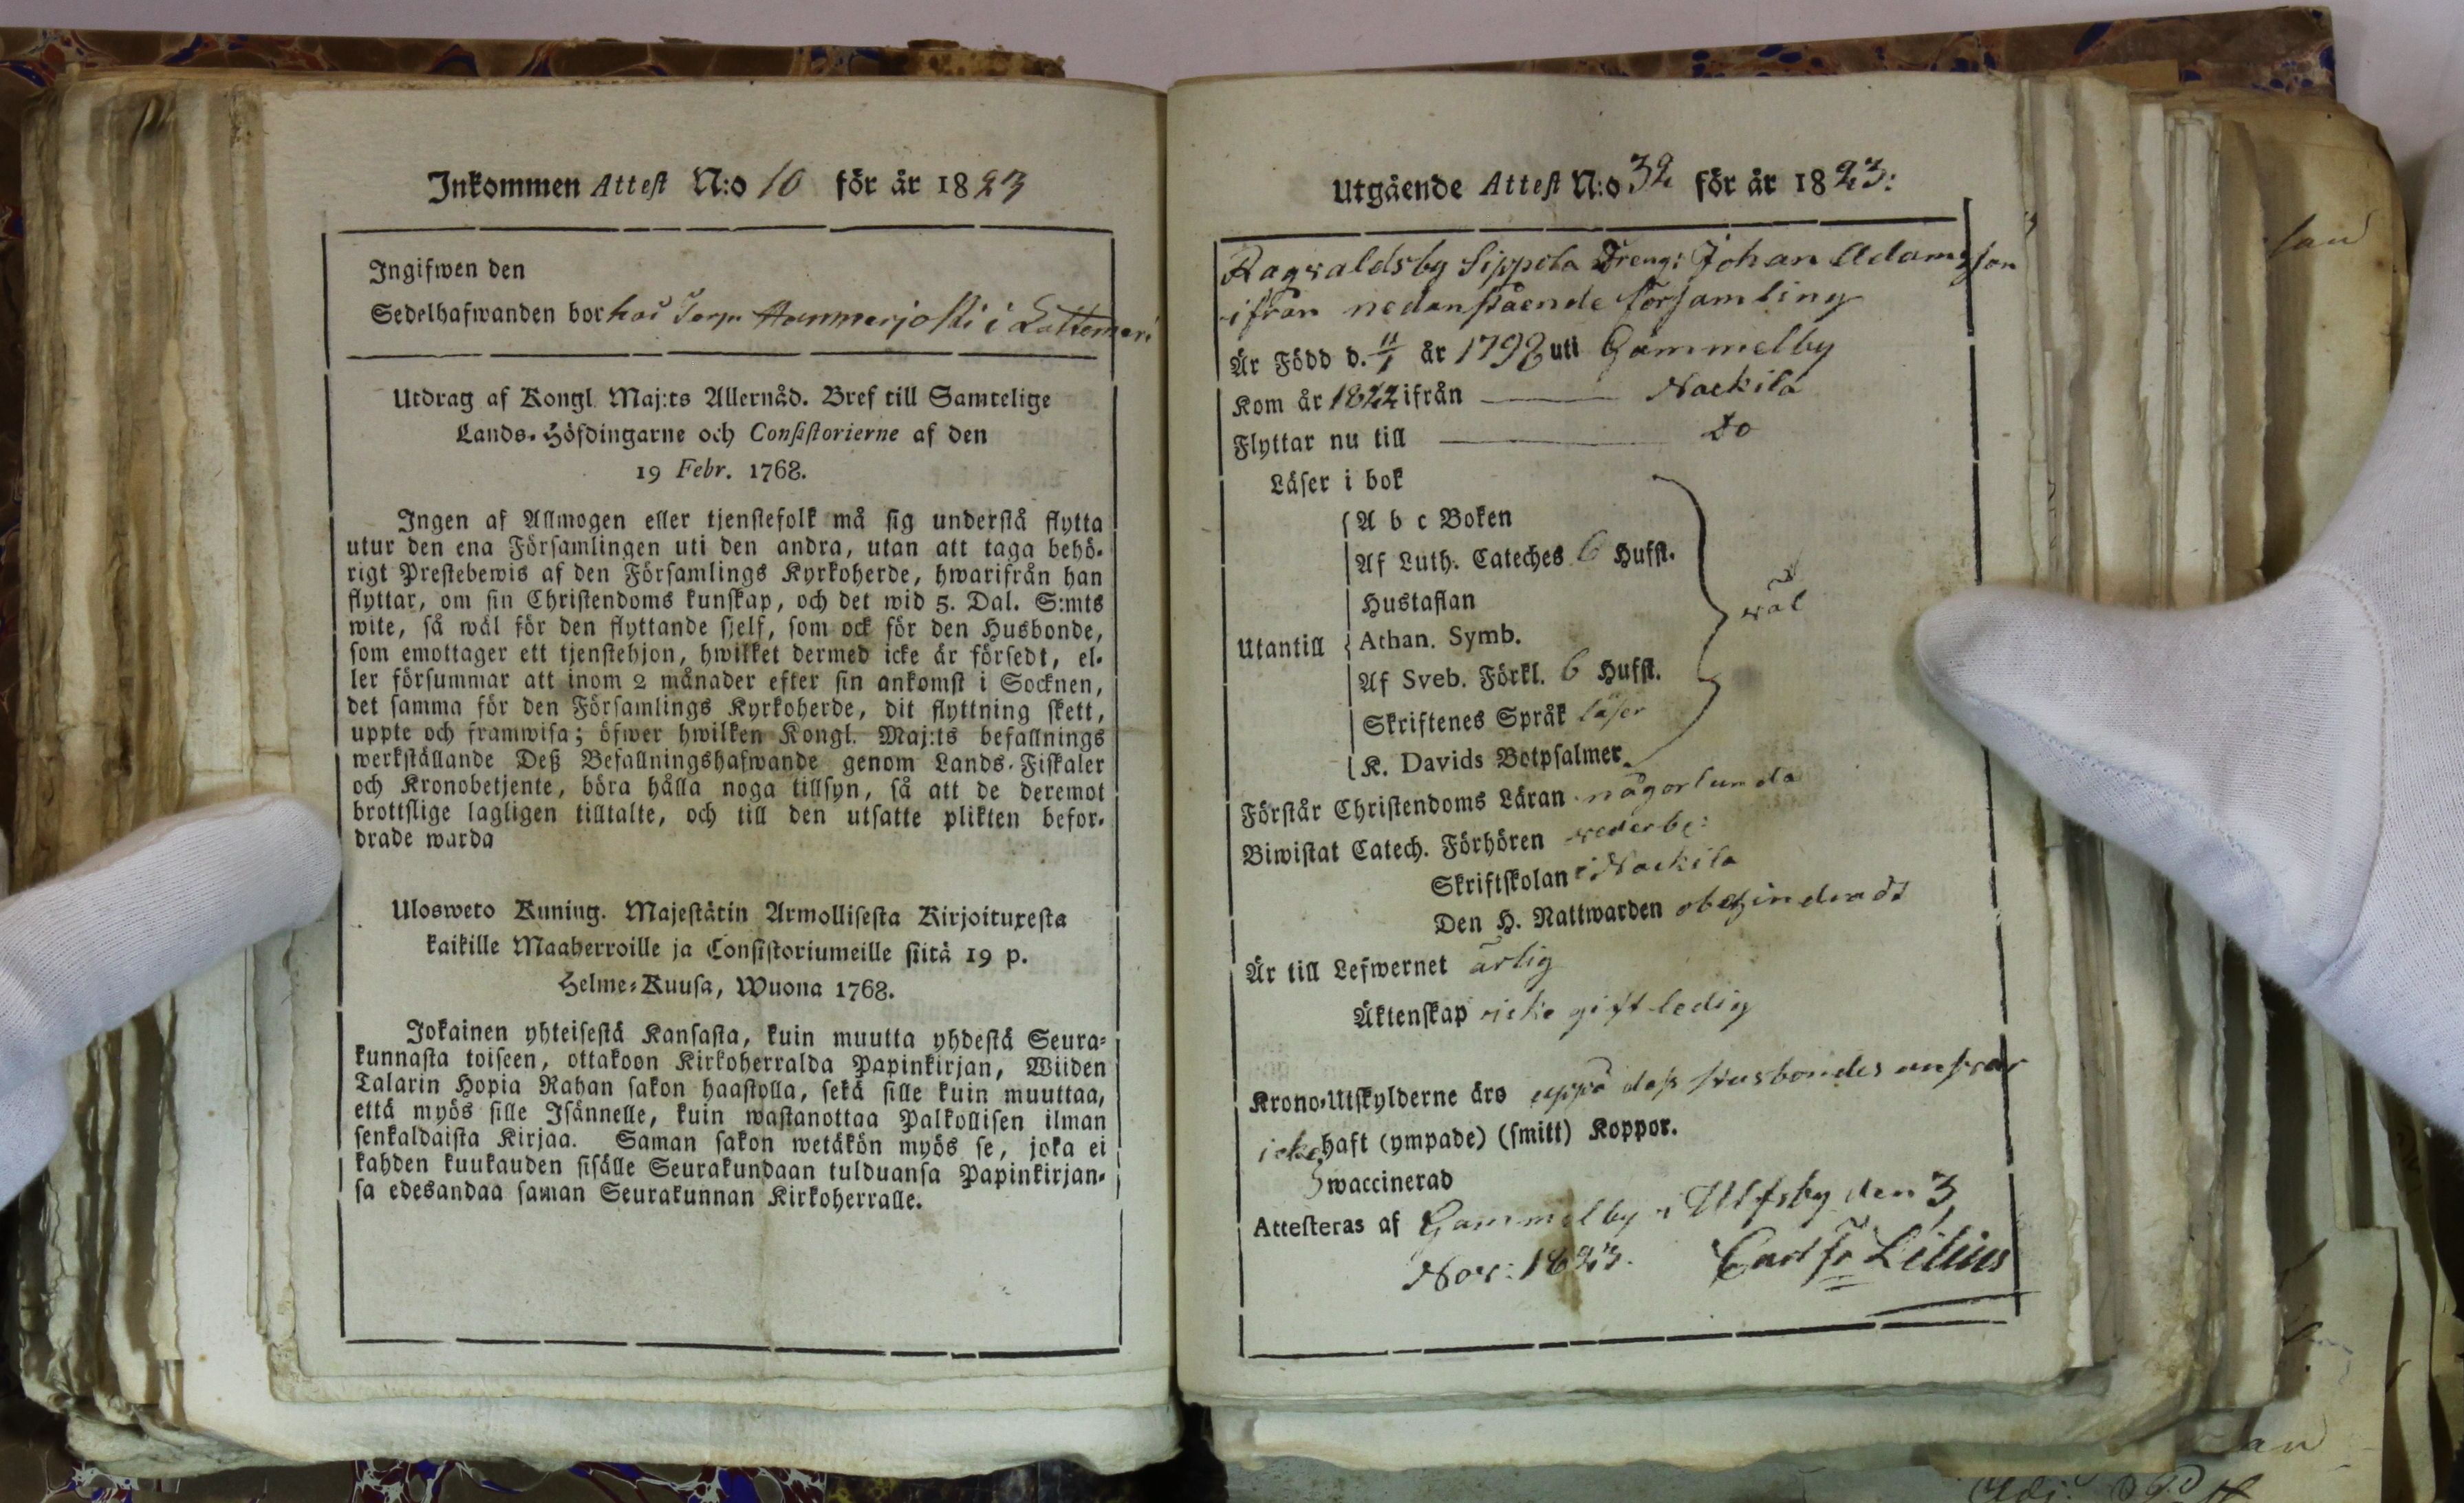 Inkommen Attest N:o 10 för år 1823
Ingifwen den
Sedelhafwanden bor hos Torp i Lattomeri
Utdrag af Kongl. Maj:ts Allernåd. Bref till Samtelige
Lands-Höfdingarne och Consistorierne af den
19 Febr. 1768.
Ingen af Allmogen eller tjenstefolk må sig understå flytta
utur den ena Församlingen uti den andra, utan att taga behö-
rigt Prestebewis af den Församlings Kyrkoherde, hwarifrån han
flyttar, om sin Christendoms kunskap, och det wid 5. Dal. S:mts
wite, så wäl för den flyttande sjelf, som ock för den Husbonde,
som emottager ett tjenstehjon, hwilket dermed icke är försedt, el-
ler försummar att inom 2 månader efter sin ankomst i Socknen,
det samma för den Församlings Kyrkoherde, dit flyttning skett,
uppte och framwisa; öfwer hwilken Kongl. Maj:ts befallnings
werkställande Deß Befallningshafwande genom Lands-Fiskaler
och Kronobetjente, böra hålla noga tillsyn, så att de deremot
brottslige lagligen tilltalte, och till den utsatte plikten befor-
drade warda
Ulosweto Kuning. Majestätin Armollisesta Kirjoituxesta
kaikille Maaherroille ja Consistoriumeille siitä 19 p.
Helme-Kuusa, Wuona 1768.
Jokainen yhteisestä Kansasta, kuin muutta yhdestä Seura-
kunnasta toiseen, ottakoon Kirkoherralda Papinkirjan, Wiiden
Talarin Hopia Rahan sakon haastolla, sekä sille kuin muuttaa,
että myös sille Isännelle, kuin wastanottaa Palkollisen ilman
senkaldaista Kirjaa. Saman sakon wetäkön myös se, joka ei
kahden kuukauden sisälle Seurakundaan tulduansa Papinkirjan-
sa edesandaa saman Seurakunnan Kirkoherralle.
Utgående Attest N:o 32 för år 1823:
Ragvaldsby Sippola Dreng: Johan Adamsson
ifrån nedanstående församling
Är Född d. 11/1 år 1798 uti Gammelby
Kom år 1822 ifrån Nackila
Flyttar nu till Do
Läser i bok
A b c Boken
Af Luth. Cateches 6 Hufst.
Hustaflan
wäl
Utantill Athan. Symb.
Af Sveb. Förkl. 6 Hufst.
Skriftenes Språk läser
K. Davids Botpsalmer.
Förstår Christendoms Läran någorlunda
Biwistat Catech. Förhören wederbr:
Skriftskolan i Nackila
Den H. Nattwarden obehindradt
Är till Lefwernet ärlig
Äktenskap icke gift ledig
Krono-Utskylderne äro uppå dess Husbondes answar
icke haft (ympade) (smitt) Koppor.
waccinerad
Attesteras af Gammelby i Ulfsby den 3
Nov: 1823. Carl Fr Lilius